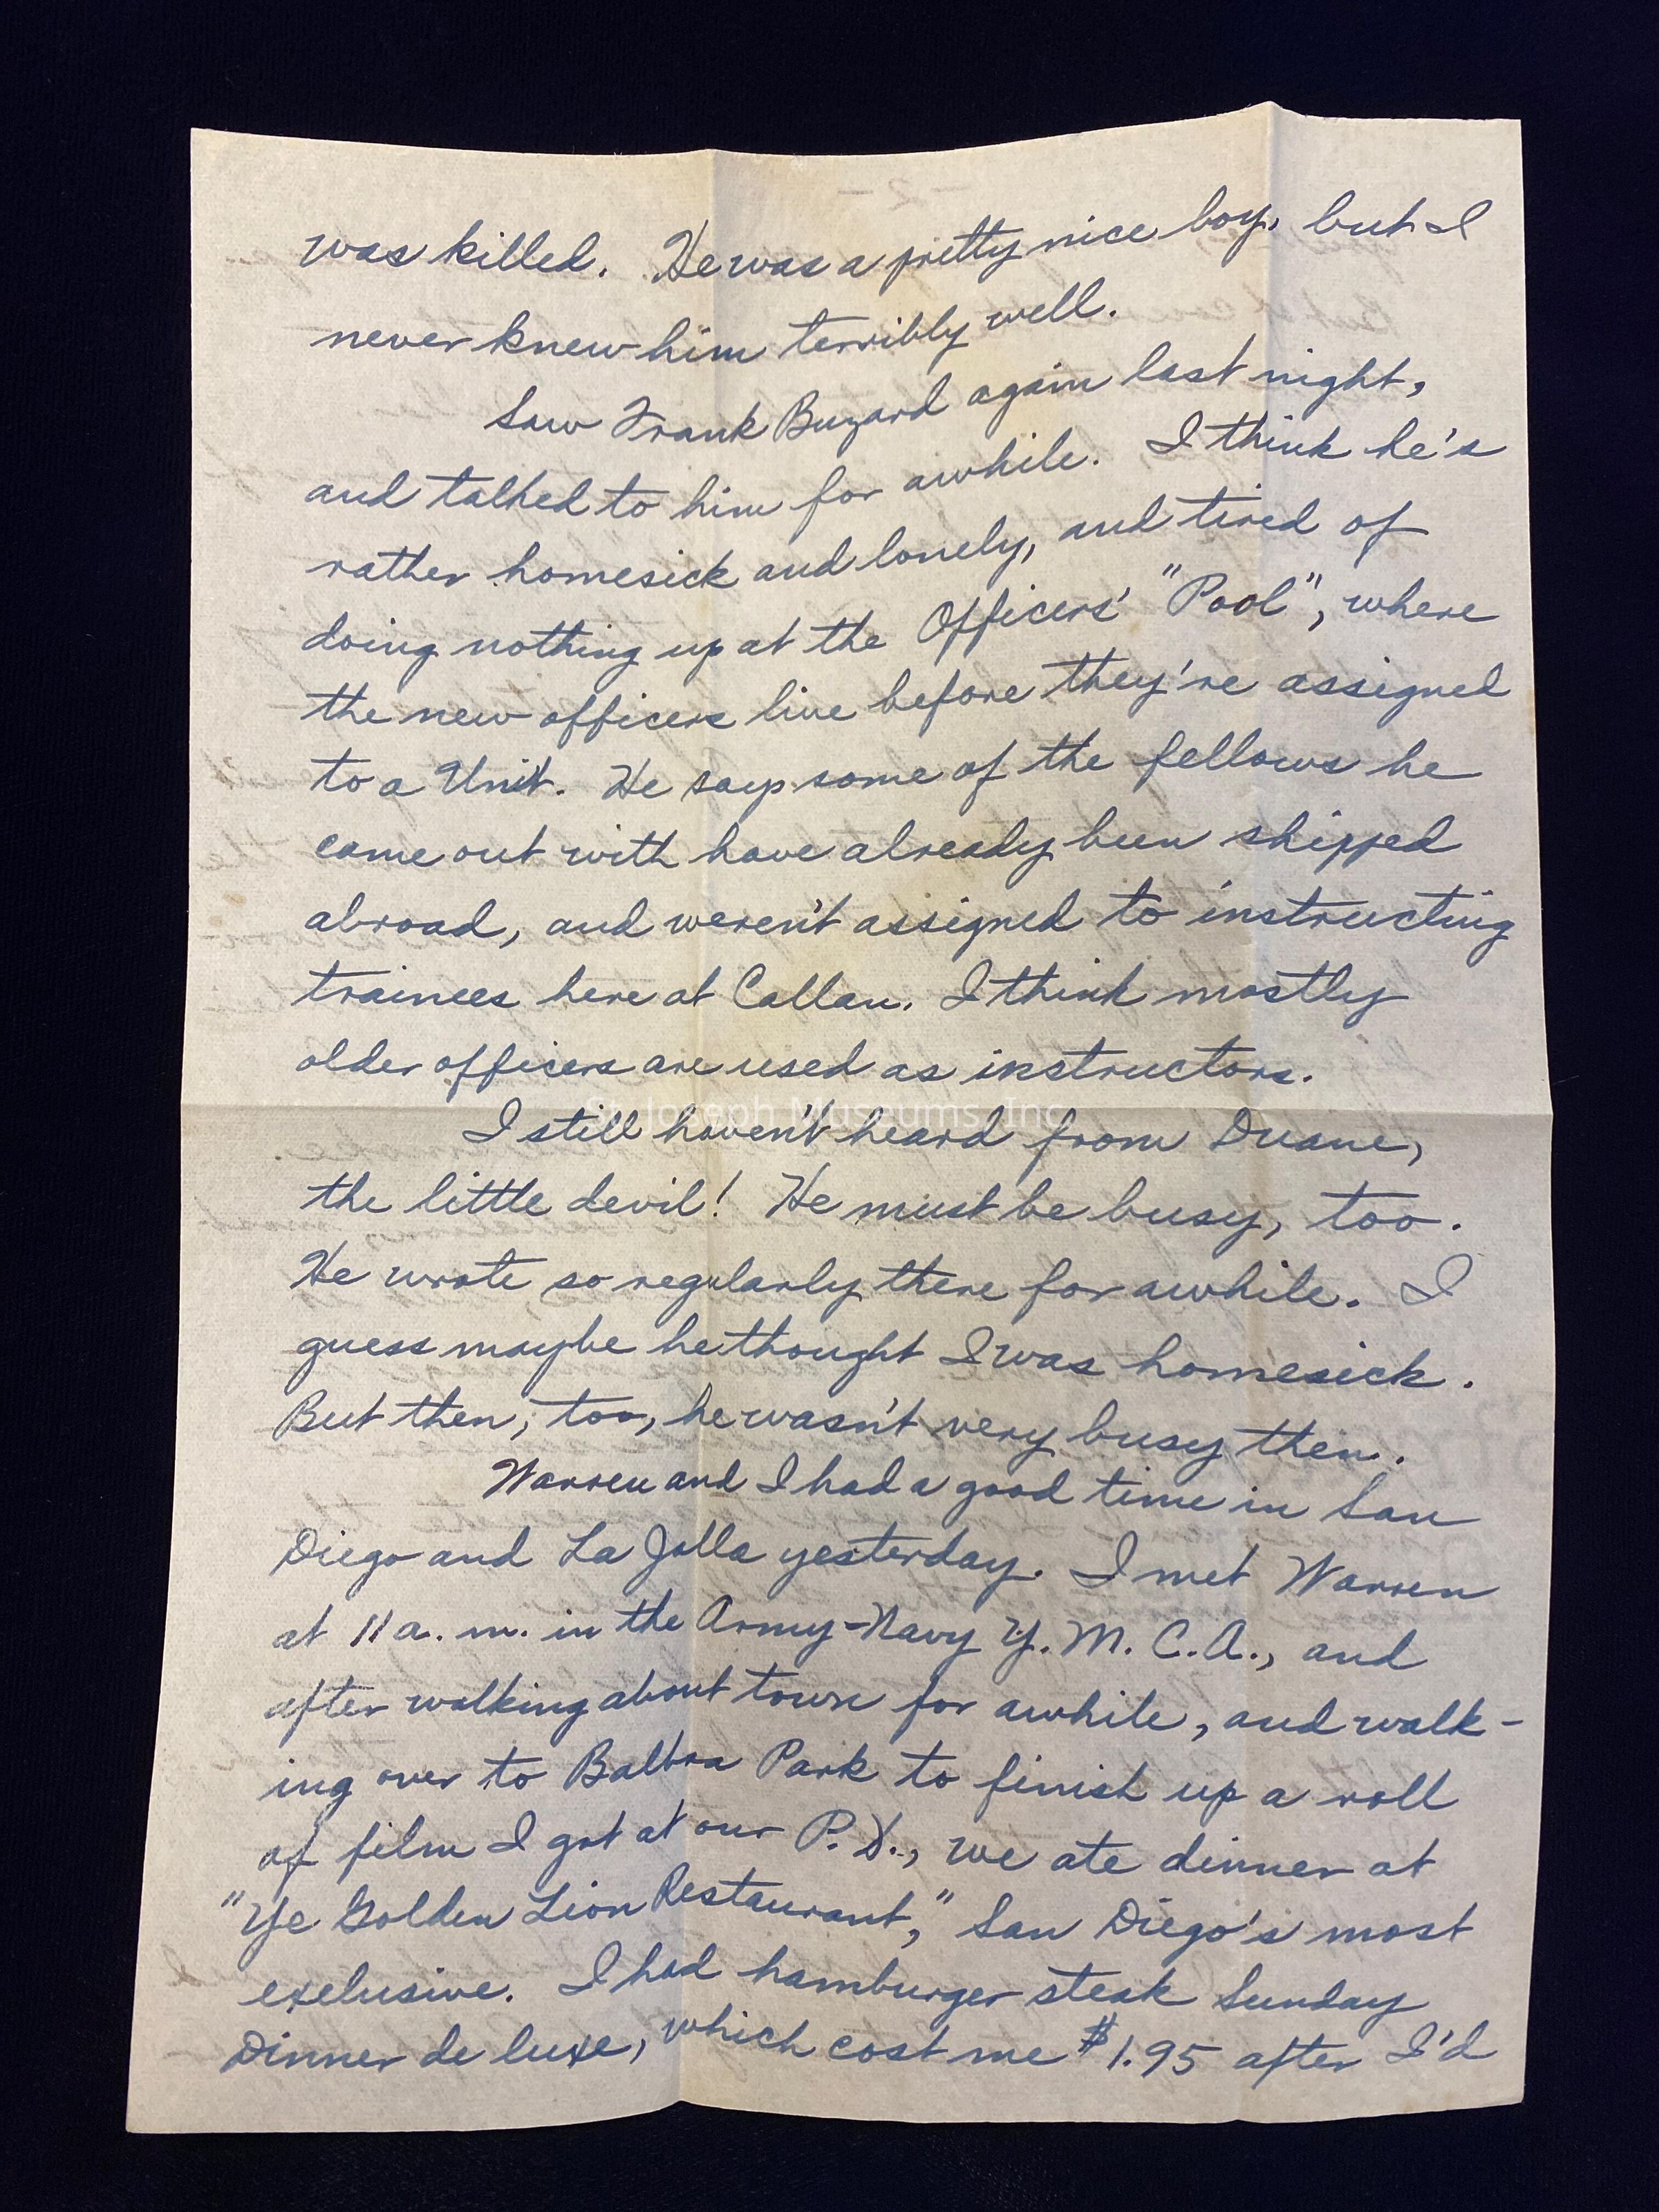 was killed. He was a pretty nice boy, but I
never knew him terribly well.
Saw Frank Buzard again last night,
and talked to him for awhile. I think he's
rather homesick and lonely, and tired of
doing nothing up at the Officers' "Pool", where
the new officers live before they're assigned
to a Unit. He says some of the fellows he
came out with have already been shipped
abroad, and weren't assigned to instructing
trainees here at Callan. I think mostly
older officers are used as instructors.
St. Joseph Museums, Inc.
I still haven't heard from Duane,
the little devil! He must be busy, too.
He wrote so regularly there for awhile. I
guess maybe he thought I was homesick.
But then, too, he wasn't very busy then.
Warren and I had a good time in San
Diego and La Jolla yesterday. I met Warren
at 11 a.m. in the Army-Navy Y.M.C.A., and
after walking about town for awhile, and walk-
ing over to Balboa Park to finish up a roll
of film I got at our P.X., we ate dinner at
"Ye Golden Lion Restaurant," San Diego's most
exclusive. I had hamburger steak Sunday
Dinner de luxe, which cost me $1.95 after I'd